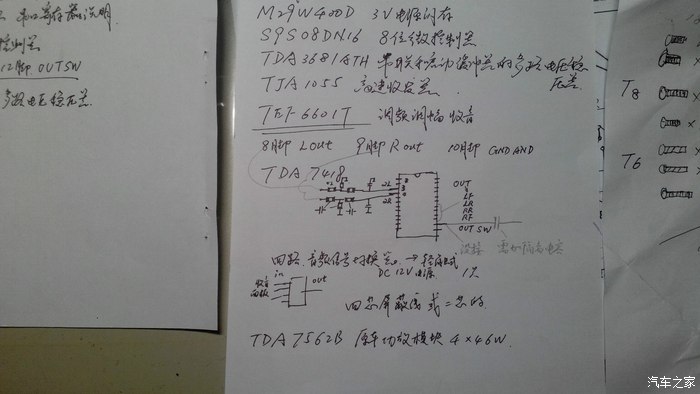 串口寄存器说明
控制器
12脚 OUTSW
多路电压稳压器.
M29W400D 3V电源闪存
S9S08DN16 8位微控制器
TDA3681ATH 串联和启动缓冲器的多路电压稳
压器
TJA1055 高速收发器
TEF6601T 调频调幅收音
8脚 Lout 9脚 Rout 10脚 GND AND
TDA7418
OUT
LF
LR
RR
RF
OUT SW
2L
2R
回路 音频信号切换器 →
DC 12V 电源 1个
in
收音
面板
out
四芯屏蔽线或二芯的
TDA7562B 原车功放模块 4×46W.
T8
T6
汽车之家